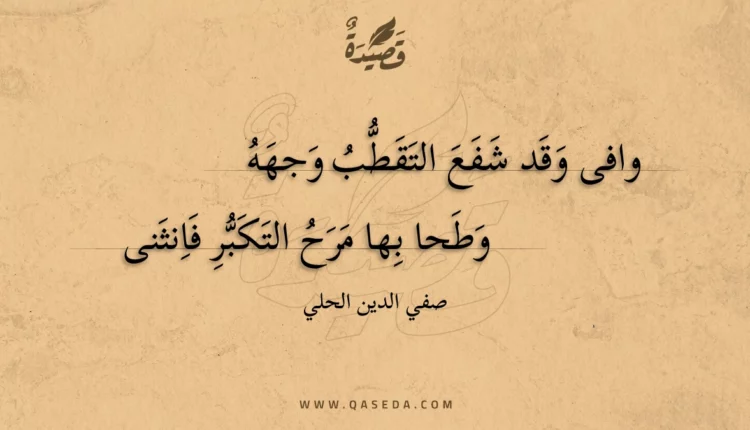 قَصِيدَةٌ
وافى وَقَد شَفَعَ التَقَطُّبُ وَجهَهُ
وَطَحا بِها مَرَحُ التَكَبُّرِ فَاِنثَنى
صفي الدين الحلي
WWW.QASEDA.COM